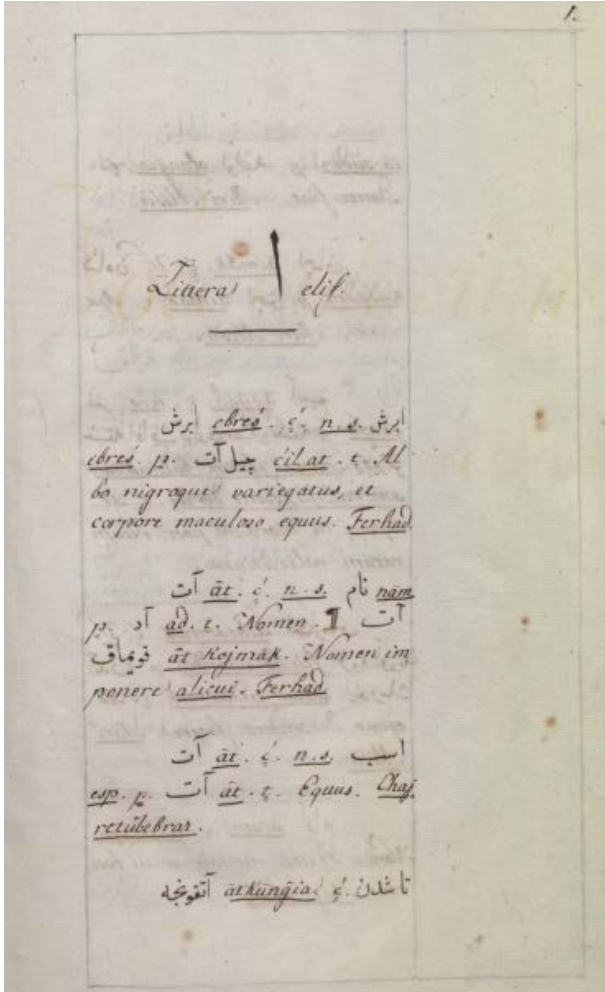 1.
Littera ا elif.
ابرش ebres. ć. n. s. ابرش
ebres. p. چيل آت ćil at. t. Al
bo nigroque variegatus, et
corpore maculoso equus. Ferhad
آت āt. ć. n. s. نام nām
p. آد ad. t. Nomen. ¶ آت
قويماق āt kojmak. Nomen im
ponere alicui. Ferhad
آت āt. ć. n. s. اسب
esp. p. آت āt. t. Equus. Chaj
retülebrar.
آتقونجه ātkünǧia ć. تا شدن